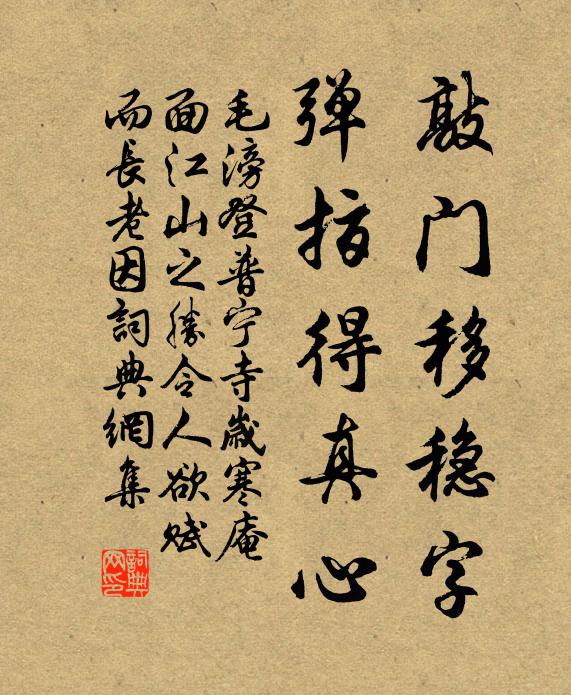 敲门移稳字
弹指得真心
毛滂登普宁寺岁寒庵
面江山之胜令人欲赋
而長老因詞典網集
詞典
网印